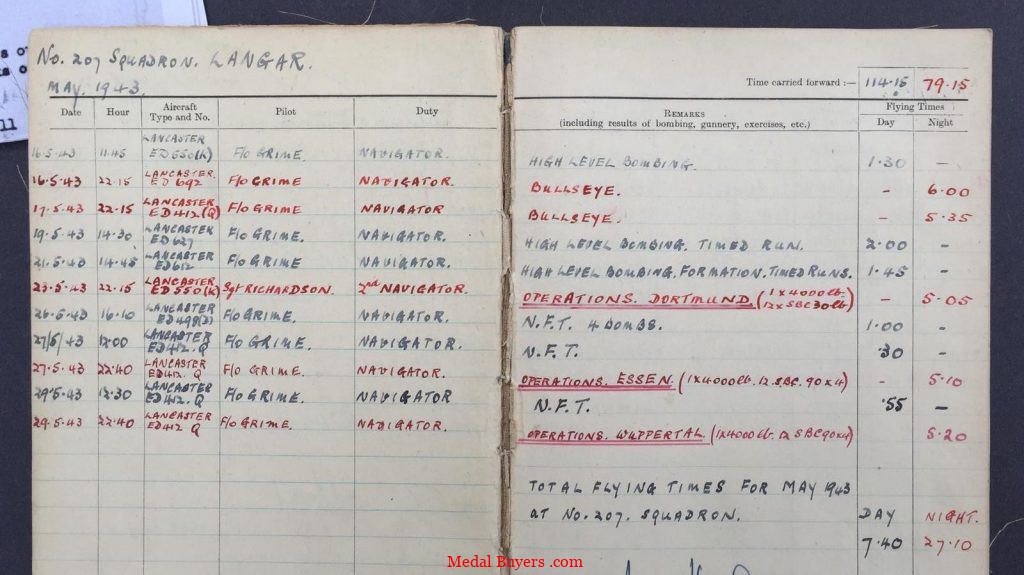 No. 207 SQUADRON. LANGAR.
MAY, 1943.
Time carried forward :— 114.15 79.15
Date Hour Aircraft Type and No. Pilot Duty REMARKS (including results of bombing, gunnery, exercises, etc.) Flying Times Day Night
16.5.43 11.45 LANCASTER ED550(K) F/O GRIME. NAVIGATOR. HIGH LEVEL BOMBING. 1.30 –
16.5.43 22.15 LANCASTER ED692 F/O GRIME NAVIGATOR. BULLSEYE. – 6.00
17.5.43 22.15 LANCASTER ED412(Q) F/O GRIME NAVIGATOR BULLSEYE. – 5.35
19.5.43 14.30 LANCASTER ED627 F/O GRIME. NAVIGATOR. HIGH LEVEL BOMBING. TIMED RUN. 2.00 –
21.5.43 14.45 LANCASTER ED612 F/O GRIME NAVIGATOR. HIGH LEVEL BOMBING, FORMATION, TIMED RUNS. 1.45 –
23.5.43 22.15 LANCASTER ED550(K) Sgt RICHARDSON. 2nd NAVIGATOR. OPERATIONS. DORTMUND (1x4000lb. 12xSBC 30lb) – 5.05
26.5.43 16.10 LANCASTER F/O GRIME. NAVIGATOR. N.F.T. 4 BOMBS. 1.00 –
27/5/43 12.00 LANCASTER ED412. Q F/O GRIME. NAVIGATOR. N.F.T. .30 –
27.5.43 22.40 LANCASTER ED412. Q F/O GRIME. NAVIGATOR. OPERATIONS. ESSEN. (1x4000lb. 12.SBC. 90x4) – 5.10
29.5.43 12.30 LANCASTER ED412. Q F/O GRIME. NAVIGATOR N.F.T. .55 –
29.5.43 22.40 LANCASTER ED412 Q F/O GRIME. NAVIGATOR. OPERATIONS. WUPPERTAL (1x4000lb. 12 SBC 90x4) 5.20
TOTAL FLYING TIMES FOR MAY 1943
AT No. 207. SQUADRON. DAY NIGHT.
7.40 27.10
Medal Buyers .com